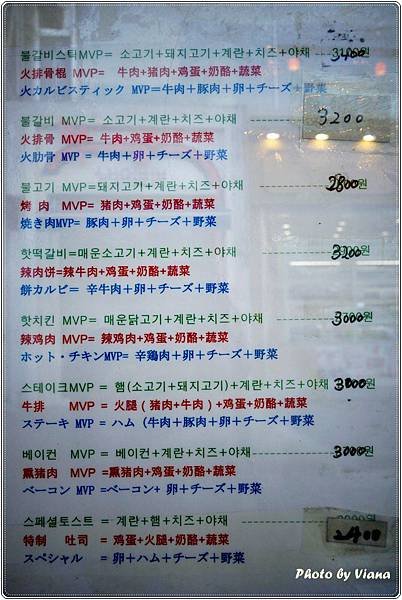 불갈비스틱MVP= 소고기+돼지고기+계란+치즈+야채 3400원
火排骨棍 MVP= 牛肉+猪肉+鸡蛋+奶酪+蔬菜
火カルビスティック MVP=牛肉+豚肉+卵+チーズ+野菜
불갈비 MVP = 소고기+계란+치즈+야채 3200
火排骨 MVP = 牛肉+鸡蛋+奶酪+蔬菜
火肋骨 MVP = 牛肉+卵+チーズ+野菜
불고기 MVP=돼지고기+계란+치즈+야채 2800원
烤 肉 MVP= 猪肉+鸡蛋+奶酪+蔬菜
焼き肉MVP= 豚肉+卵+チーズ+野菜
핫떡갈비=매운소고기+계란+치즈+야채 3200원
辣肉饼=辣牛肉+鸡蛋+奶酪+蔬菜
餅カルビ= 辛牛肉+卵+チーズ+野菜
핫치킨 MVP= 매운닭고기+계란+치즈+야채 3000원
辣鸡肉 MVP= 辣鸡肉+鸡蛋+奶酪+蔬菜
ホット・チキンMVP= 辛鶏肉+卵+チーズ+野菜
스테이크MVP = 햄(소고기+돼지고기)+계란+치즈+야채 원
牛排 MVP = 火腿(猪肉+牛肉)+鸡蛋+奶酪+蔬菜
ステーキ MVP = ハム(牛肉+豚肉+卵+チーズ+野菜
베이컨 MVP = 베이컨+계란+치즈+야채 3000원
熏猪肉 MVP =熏猪肉+鸡蛋+奶酪+蔬菜
ベーコン MVP =ベーコン+ 卵+チーズ+野菜
스페셜토스트 = 계란+햄+치즈+야채 2400
特制 吐司 = 鸡蛋+火腿+奶酪+蔬菜
スペシャル = 卵+ハム+チーズ+野菜
Photo by Viana